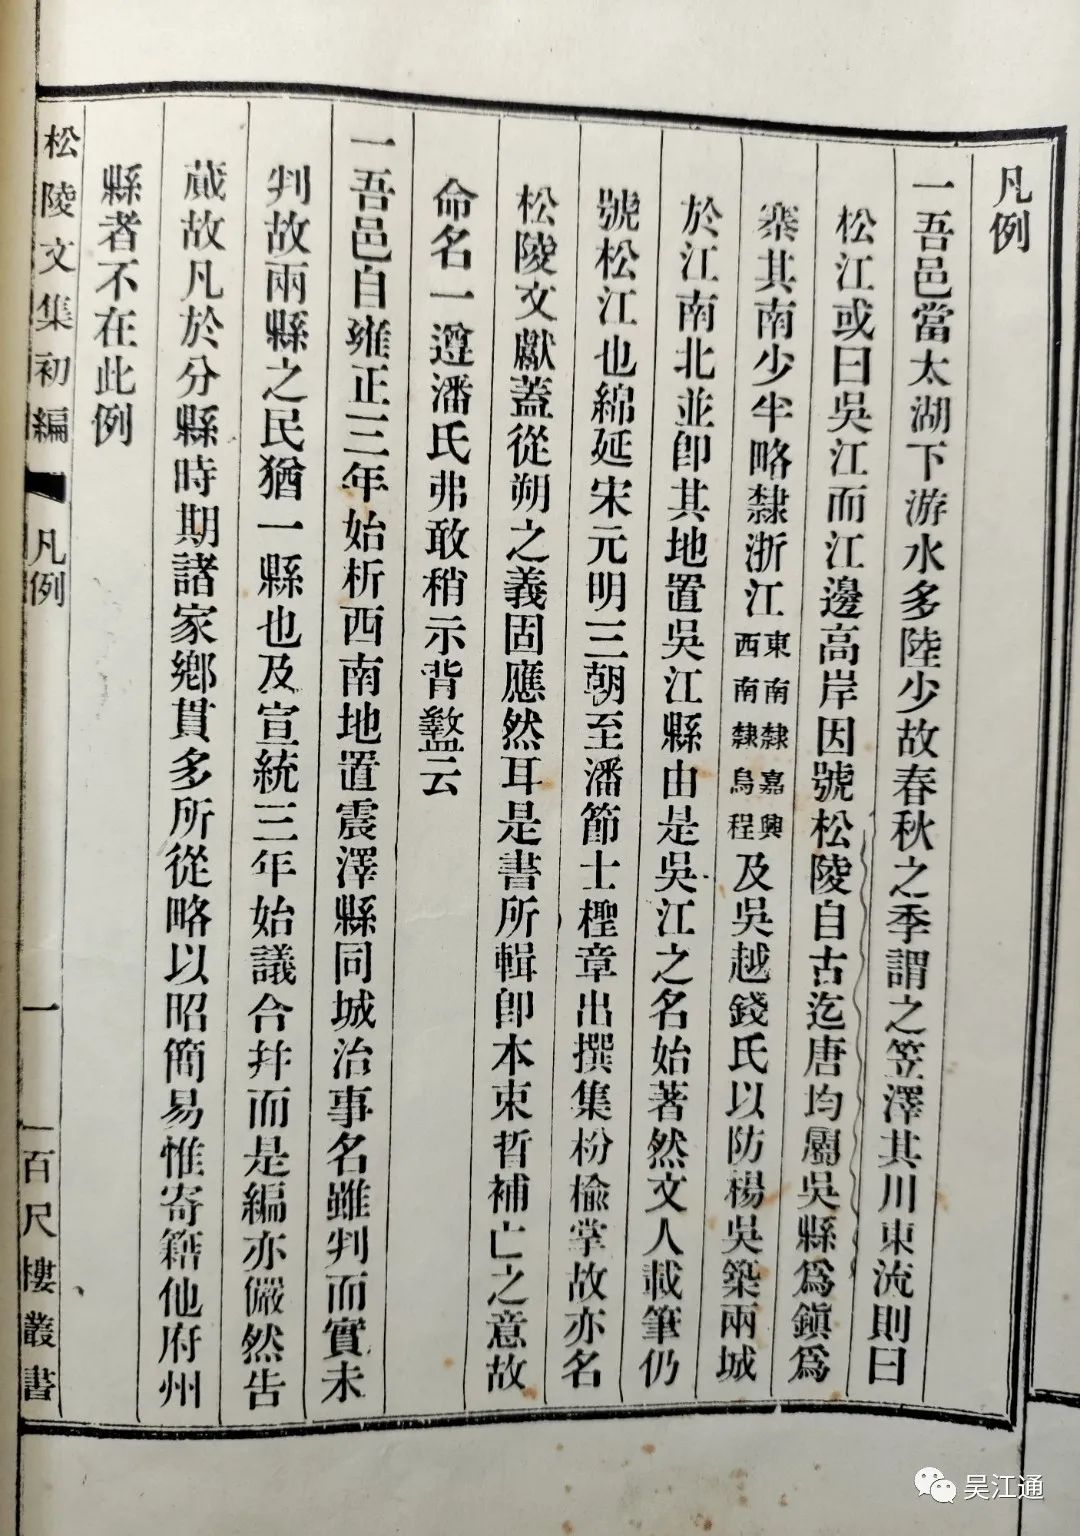 凡例
一吾邑當太湖下游水多陸少故春秋之季謂之笠澤其川東流則曰
松江或曰吳江而江邊高岸因號松陵自古迄唐均屬吳縣爲鎭爲
寨其南少半略隸浙江東南隸嘉興西南隸烏程及吳越錢氏以防楊吳築兩城
於江南北並卽其地置吳江縣由是吳江之名始著然文人載筆仍
號松江也綿延宋元明三朝至潘節士檉章出撰集枌榆掌故亦名
松陵文獻蓋從朔之義固應然耳是書所輯卽本束晳補亡之意故
命名一遵潘氏弗敢稍示背盭云
一吾邑自雍正三年始析西南地置震澤縣同城治事名雖判而實未
判故兩縣之民猶一縣也及宣統三年始議合幷而是編亦儼然告
蕆故凡於分縣時期諸家鄉貫多所從略以昭簡易惟寄籍他府州
縣者不在此例
松陵文集初編 凡例 一 百尺樓叢書
吴江通